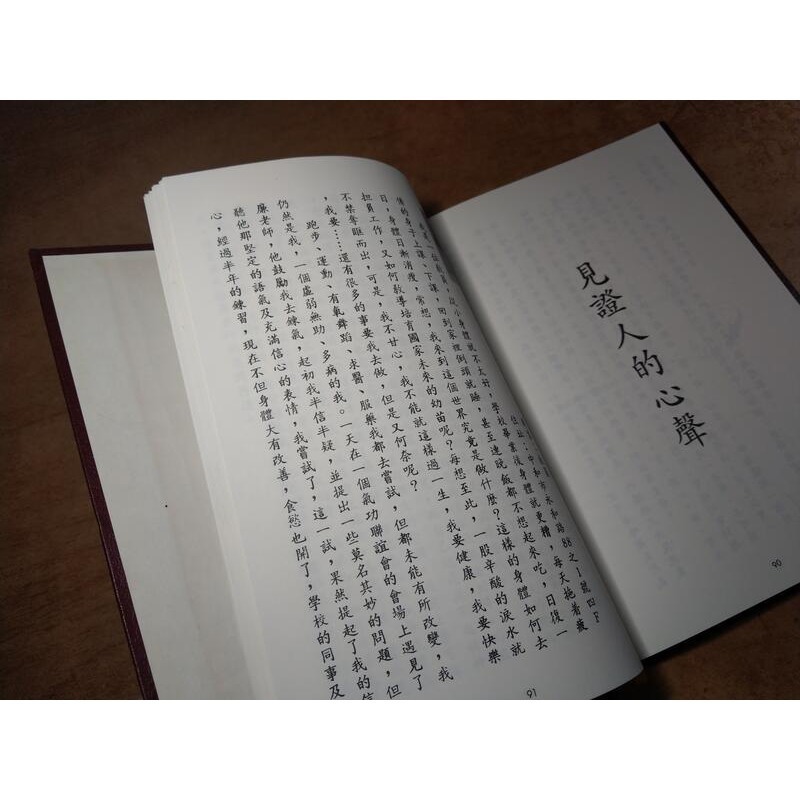 見證人的心聲
90
市永和路88之1號四F
一位教員，從小身體就不太好，學校畢業後身體就更糟，每天拖著疲
憊的身子上課、下課，回到家裡倒頭就睡，甚至連晚飯都不想起來吃，日復一
日，身體日漸消瘦，常想，我來到這個世界究竟是做什麼？這樣的身體如何去
擔員工作，又如何教導培育國家未來的幼苗呢？每想至此，一股辛酸的淚水就
不禁奪眶而出，可是，我不甘心，我不能就這樣過一生，我要健康，我要快樂
，我要……還有很多的事要我去做，但是又何奈呢？
跑步、運動、有氧舞蹈、求醫、服藥我都去嘗試，但都未能有所改變，我
仍然是我，一個虛弱無助、多病的我。一天在一個氣功聯誼會的會場上遇見了
廉老師，他鼓勵我去練氣，起初我半信半疑，並提出一些莫名其妙的問題，但
聽他那堅定的語氣及充滿信心的表情，我嘗試了，這一試，果然提起了我的信
心，經過半年的練習，現在不但身體大有改善，食慾也開了，學校的同事及
91